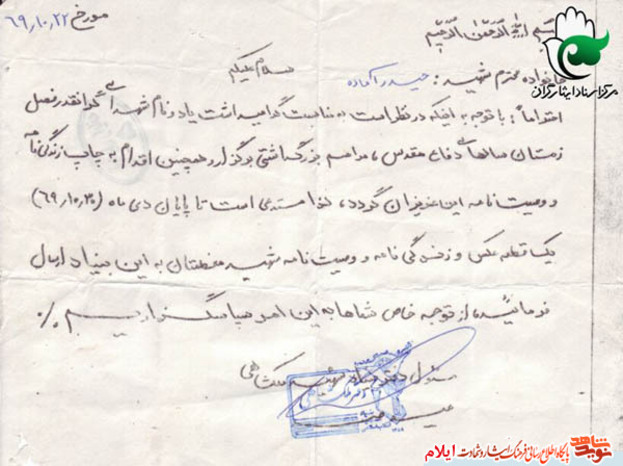 بسم الله الرحمن الرحیم
مورخ ۶۹/۱۰/۲۲
مرکز اسناد ایثارگران
سلام علیکم
خانواده محترم شهید: حیدر آماده
احتراماً: با توجه به اینکه در نظر است به مناسبت گرامیداشت یاد و نام شهدای گرانقدر فصل
زمستان سالهای دفاع مقدس، مراسم بزرگداشتی برگزار و همچنین اقدام به چاپ زندگی نامه
و وصیت نامه این عزیزان گردد، لذا مستدعی است تا پایان دی ماه (۶۹/۱۰/۳۰)
یک قطعه عکس و زندگی نامه و وصیت نامه شهید معظمتان به این بنیاد ارسال
فرمائید، از توجه خاص شما به این امر سپاسگزاریم ٪
مسئول دفتر بنیاد شهید ملکشاهی
پایگاه اطلاع رسانی فرهنگ ایثار و شهادت ایلام
نوید شاهد